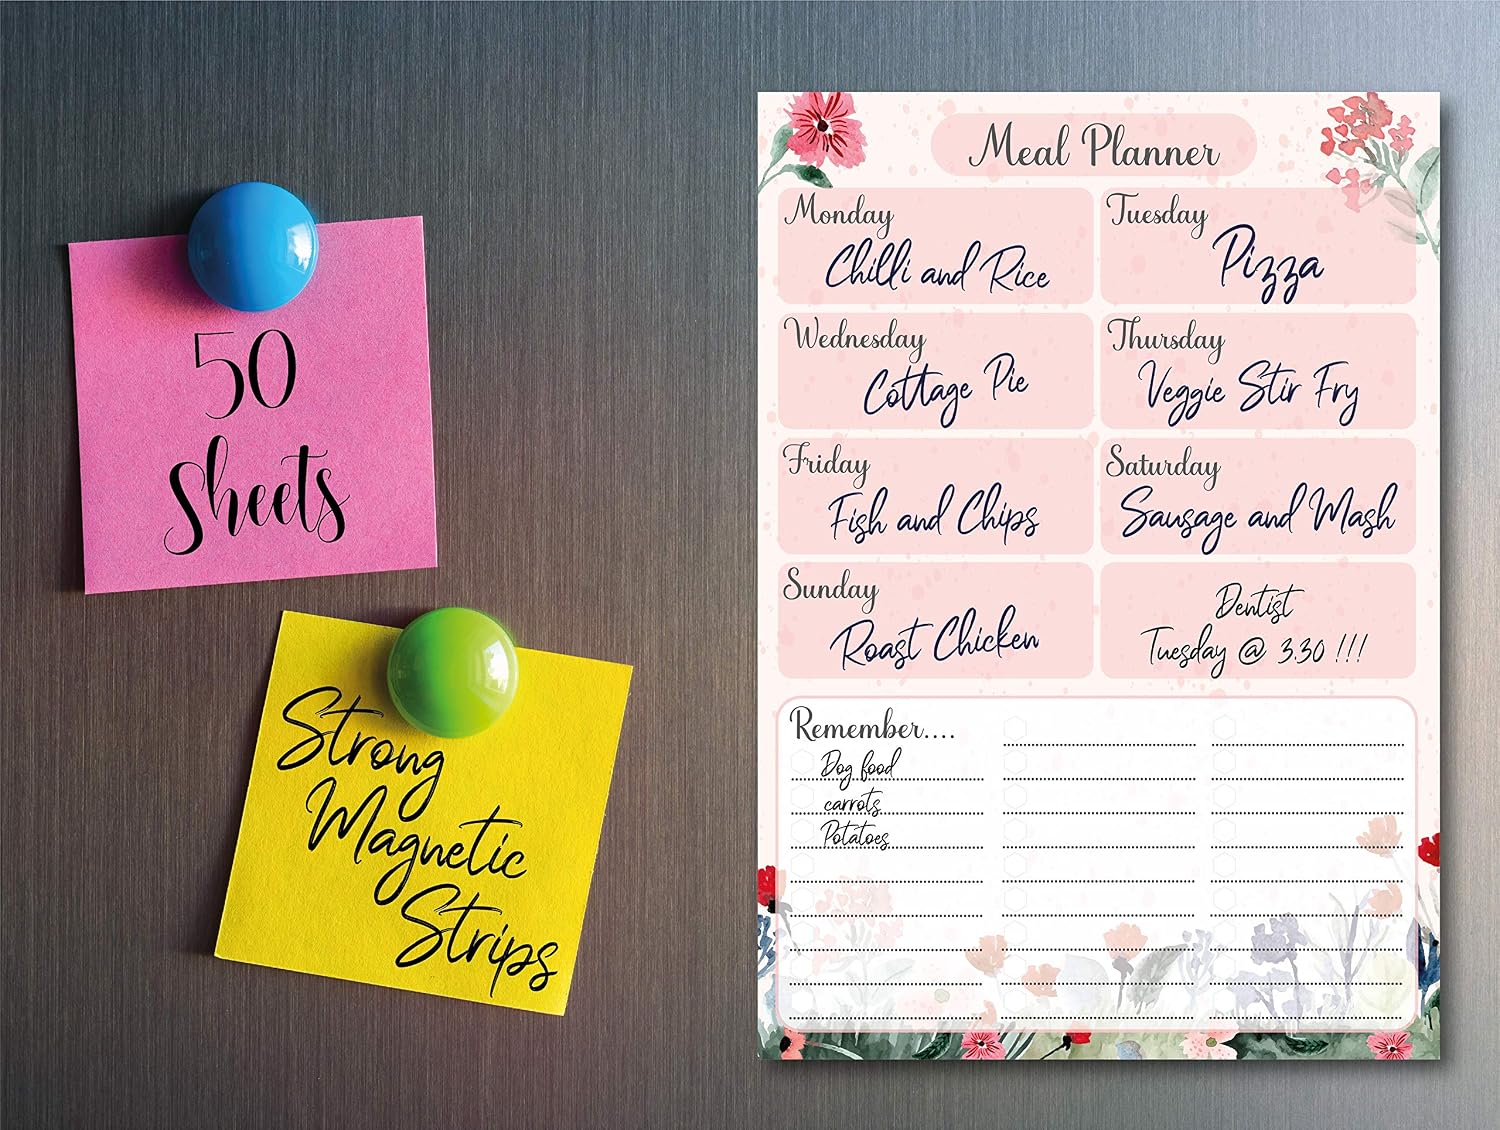 50
Sheets
Strong
Magnetic
Strips
Meal Planner
Monday
Chilli and Rice
Tuesday
Pizza
Wednesday
Cottage Pie
Thursday
Veggie Stir Fry
Friday
Fish and Chips
Saturday
Sausage and Mash
Sunday
Roast Chicken
Dentist
Tuesday @ 3.30 !!!
Remember....
Dog food
carrots
Potatoes